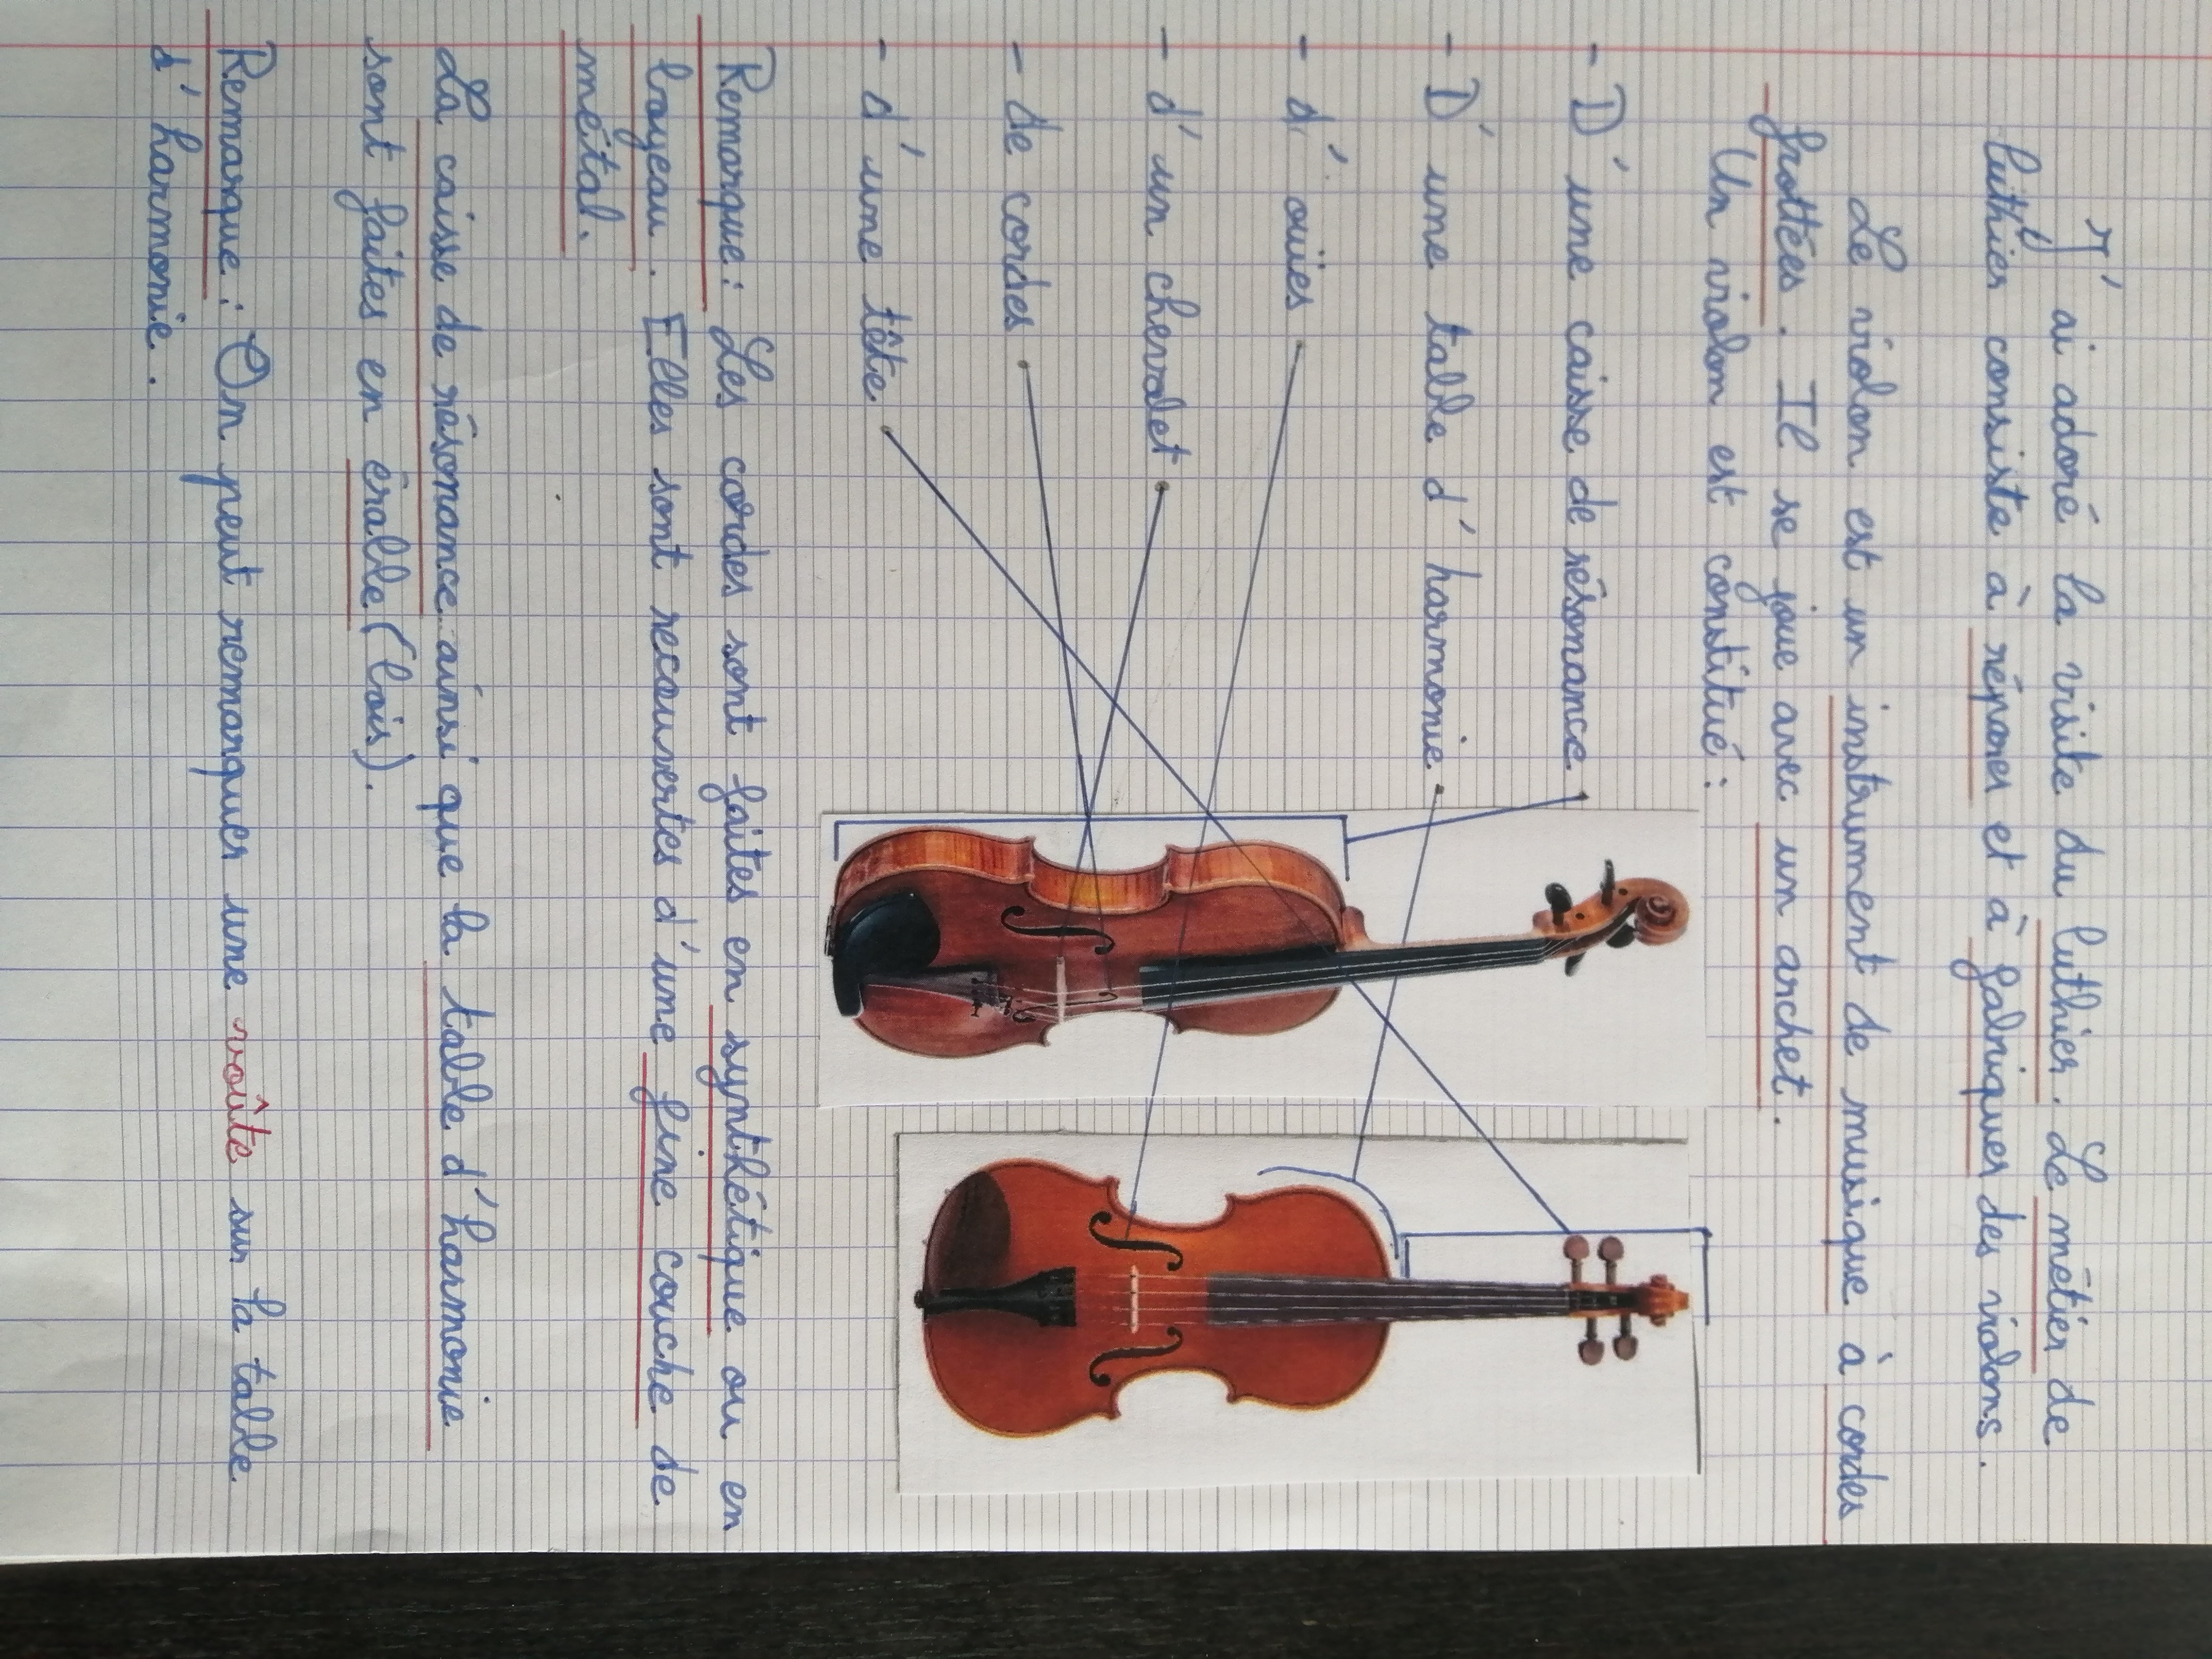 J'ai adoré la visite du luthier. Le métier de
luthier consiste à réparer et à fabriquer des violons.
Le violon est un instrument de musique à cordes
frottées. Il se joue avec un archet.
Un violon est constitué :
- D'une caisse de résonance
- D'une table d'harmonie
- d'ouïes
- d'un chevalet
- de cordes
- d'une tête
Remarque : Les cordes sont faites en synthétique ou en
boyeau. Elles sont recouvertes d'une fine couche de
métal.
La caisse de résonance ainsi que la table d'harmonie
sont faites en érable (bois).
Remarque : On peut remarquer une voûte sur la table
d'harmonie.